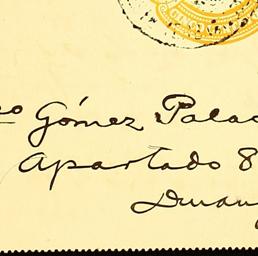 CINCO
no Gómez Palac
Apartado 8
Duran